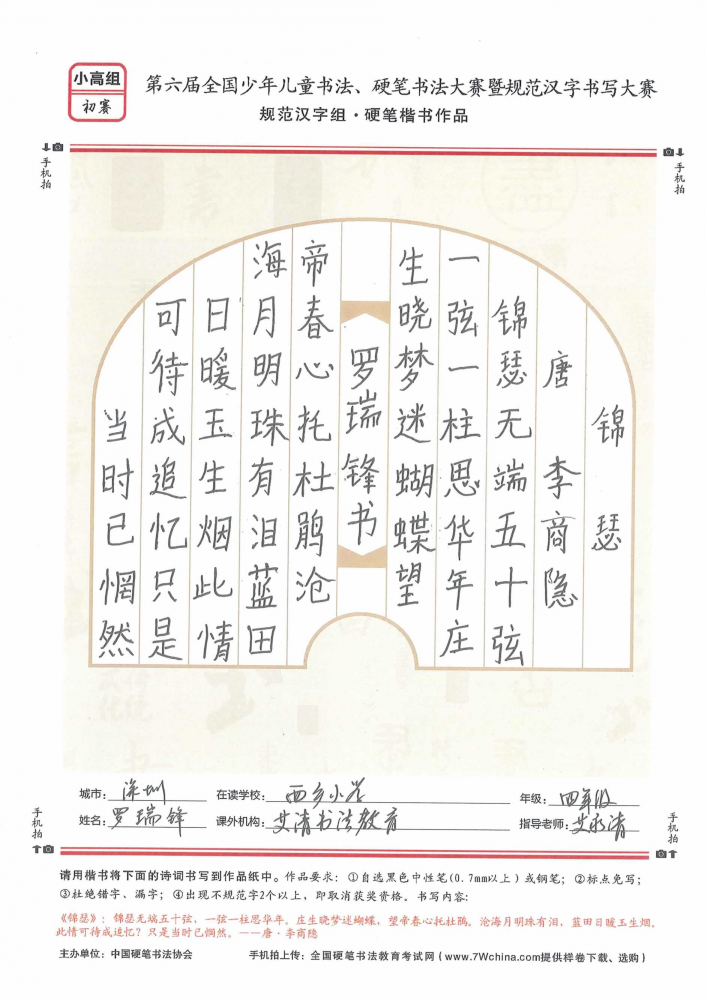 小高组
初赛
第六届全国少年儿童书法、硬笔书法大赛暨规范汉字书写大赛
规范汉字组·硬笔楷书作品
手机拍
手机拍
锦瑟
唐 李商隐
锦瑟无端五十弦
一弦一柱思华年庄
生晓梦迷蝴蝶望
罗瑞锋书
帝春心托杜鹃沧
海月明珠有泪蓝田
日暖玉生烟此情
可待成追忆只是
当时已惘然
城市：深圳 在读学校：西乡小学 年级：四年级
姓名：罗瑞锋 课外机构：艾清书法教育 指导老师：艾永清
手机拍
手机拍
请用楷书将下面的诗词书写到作品纸中。作品要求：①自选黑色中性笔(0.7mm以上)或钢笔；②标点免写；
③杜绝错字、漏字；④出现不规范字2个以上，即取消获奖资格。书写内容：
《锦瑟》：锦瑟无端五十弦，一弦一柱思华年。庄生晓梦迷蝴蝶，望帝春心托杜鹃。沧海月明珠有泪，蓝田日暖玉生烟。
此情可待成追忆？只是当时已惘然。——唐·李商隐
主办单位：中国硬笔书法协会 手机拍上传：全国硬笔书法教育考试网（www.7Wchina.com提供样卷下载、选购）